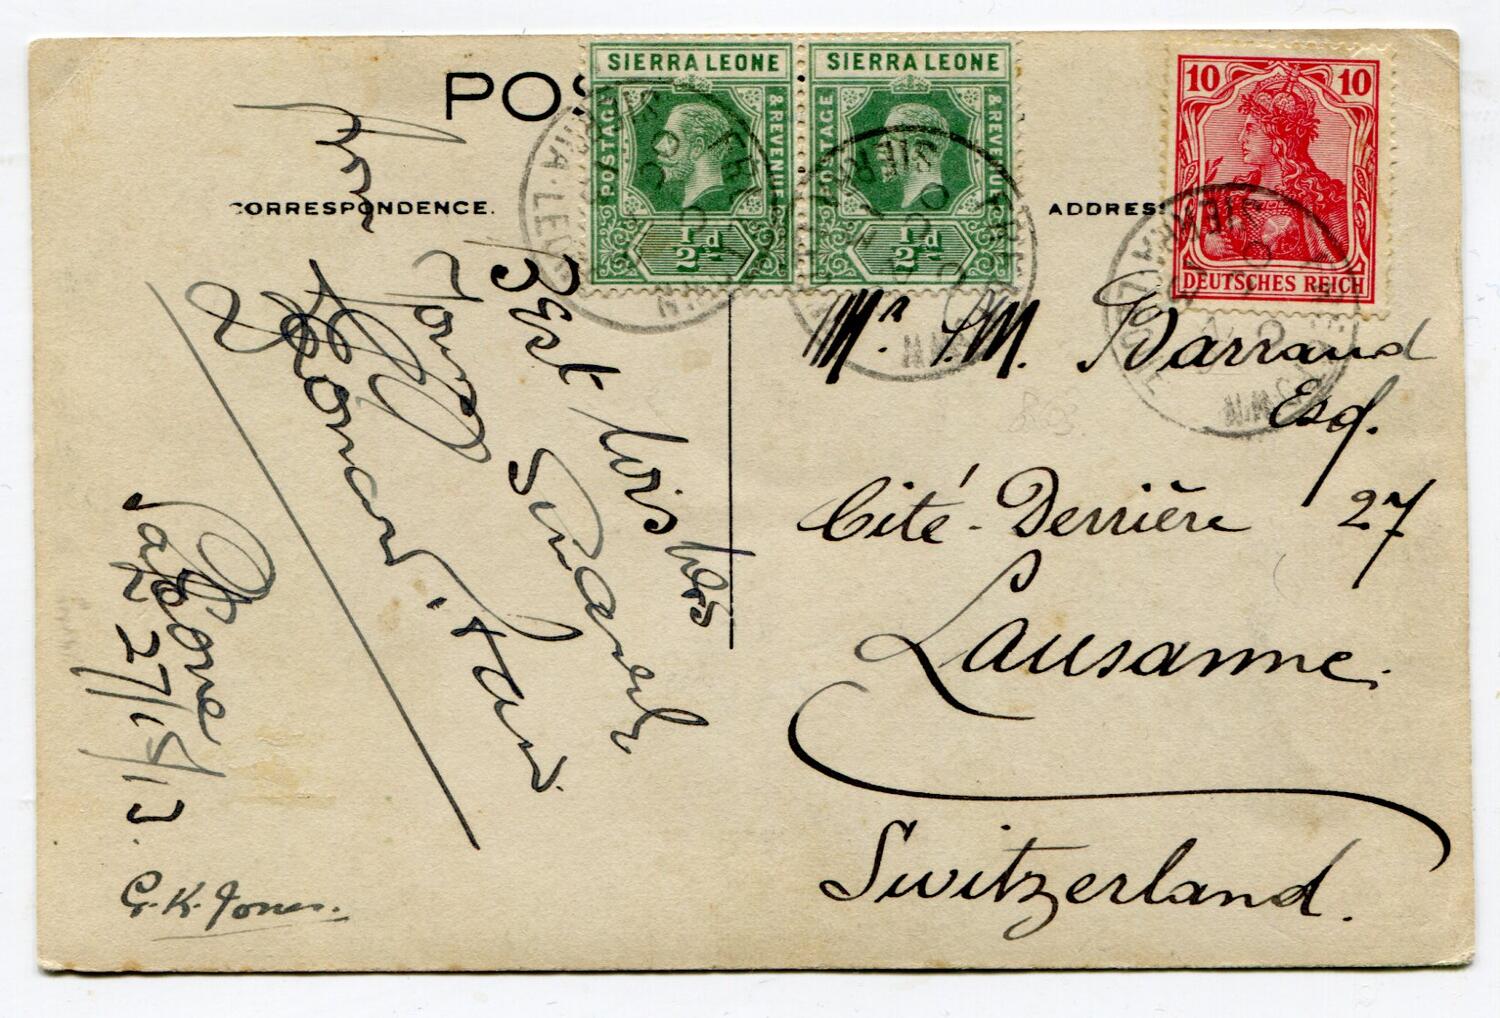 SIERRA LEONE
POSTAGE
& REVENUE
½d
SIERRA LEONE
POSTAGE
& REVENUE
½d
10
10
DEUTSCHES REICH
CORRESPONDENCE.
ADDRESS
Best wishes
from
Yours
Sincerely
Leonard
27/10/13.
G. K. Jones.
Mr. S. M. Barrand
Esq.
Cité-Derrière 27
Lausanne.
Switzerland.